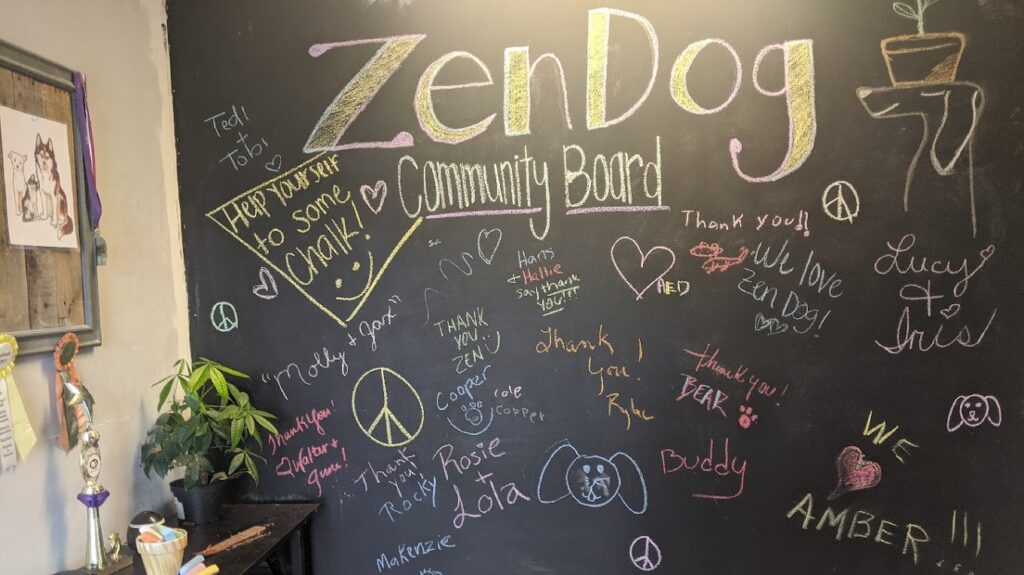 ZenDog
Community Board
Tedi
+
Tobi
Help Yourself
to some
Chalk!
Thank you!!
We love
Zen Dog!
Lucy
+
Iris
Harris
+ Hallie
say thank
you!!!
RED
"Molly + Jax"
THANK
YOU
ZEN
Cooper
cole
copper
Thank
You!
Rylee
thank you!
BEAR
Thank You!
Walter +
June!
Thank
you!
Rocky
Rosie
+
Lola
Buddy
WE
AMBER!!!
Makenzie